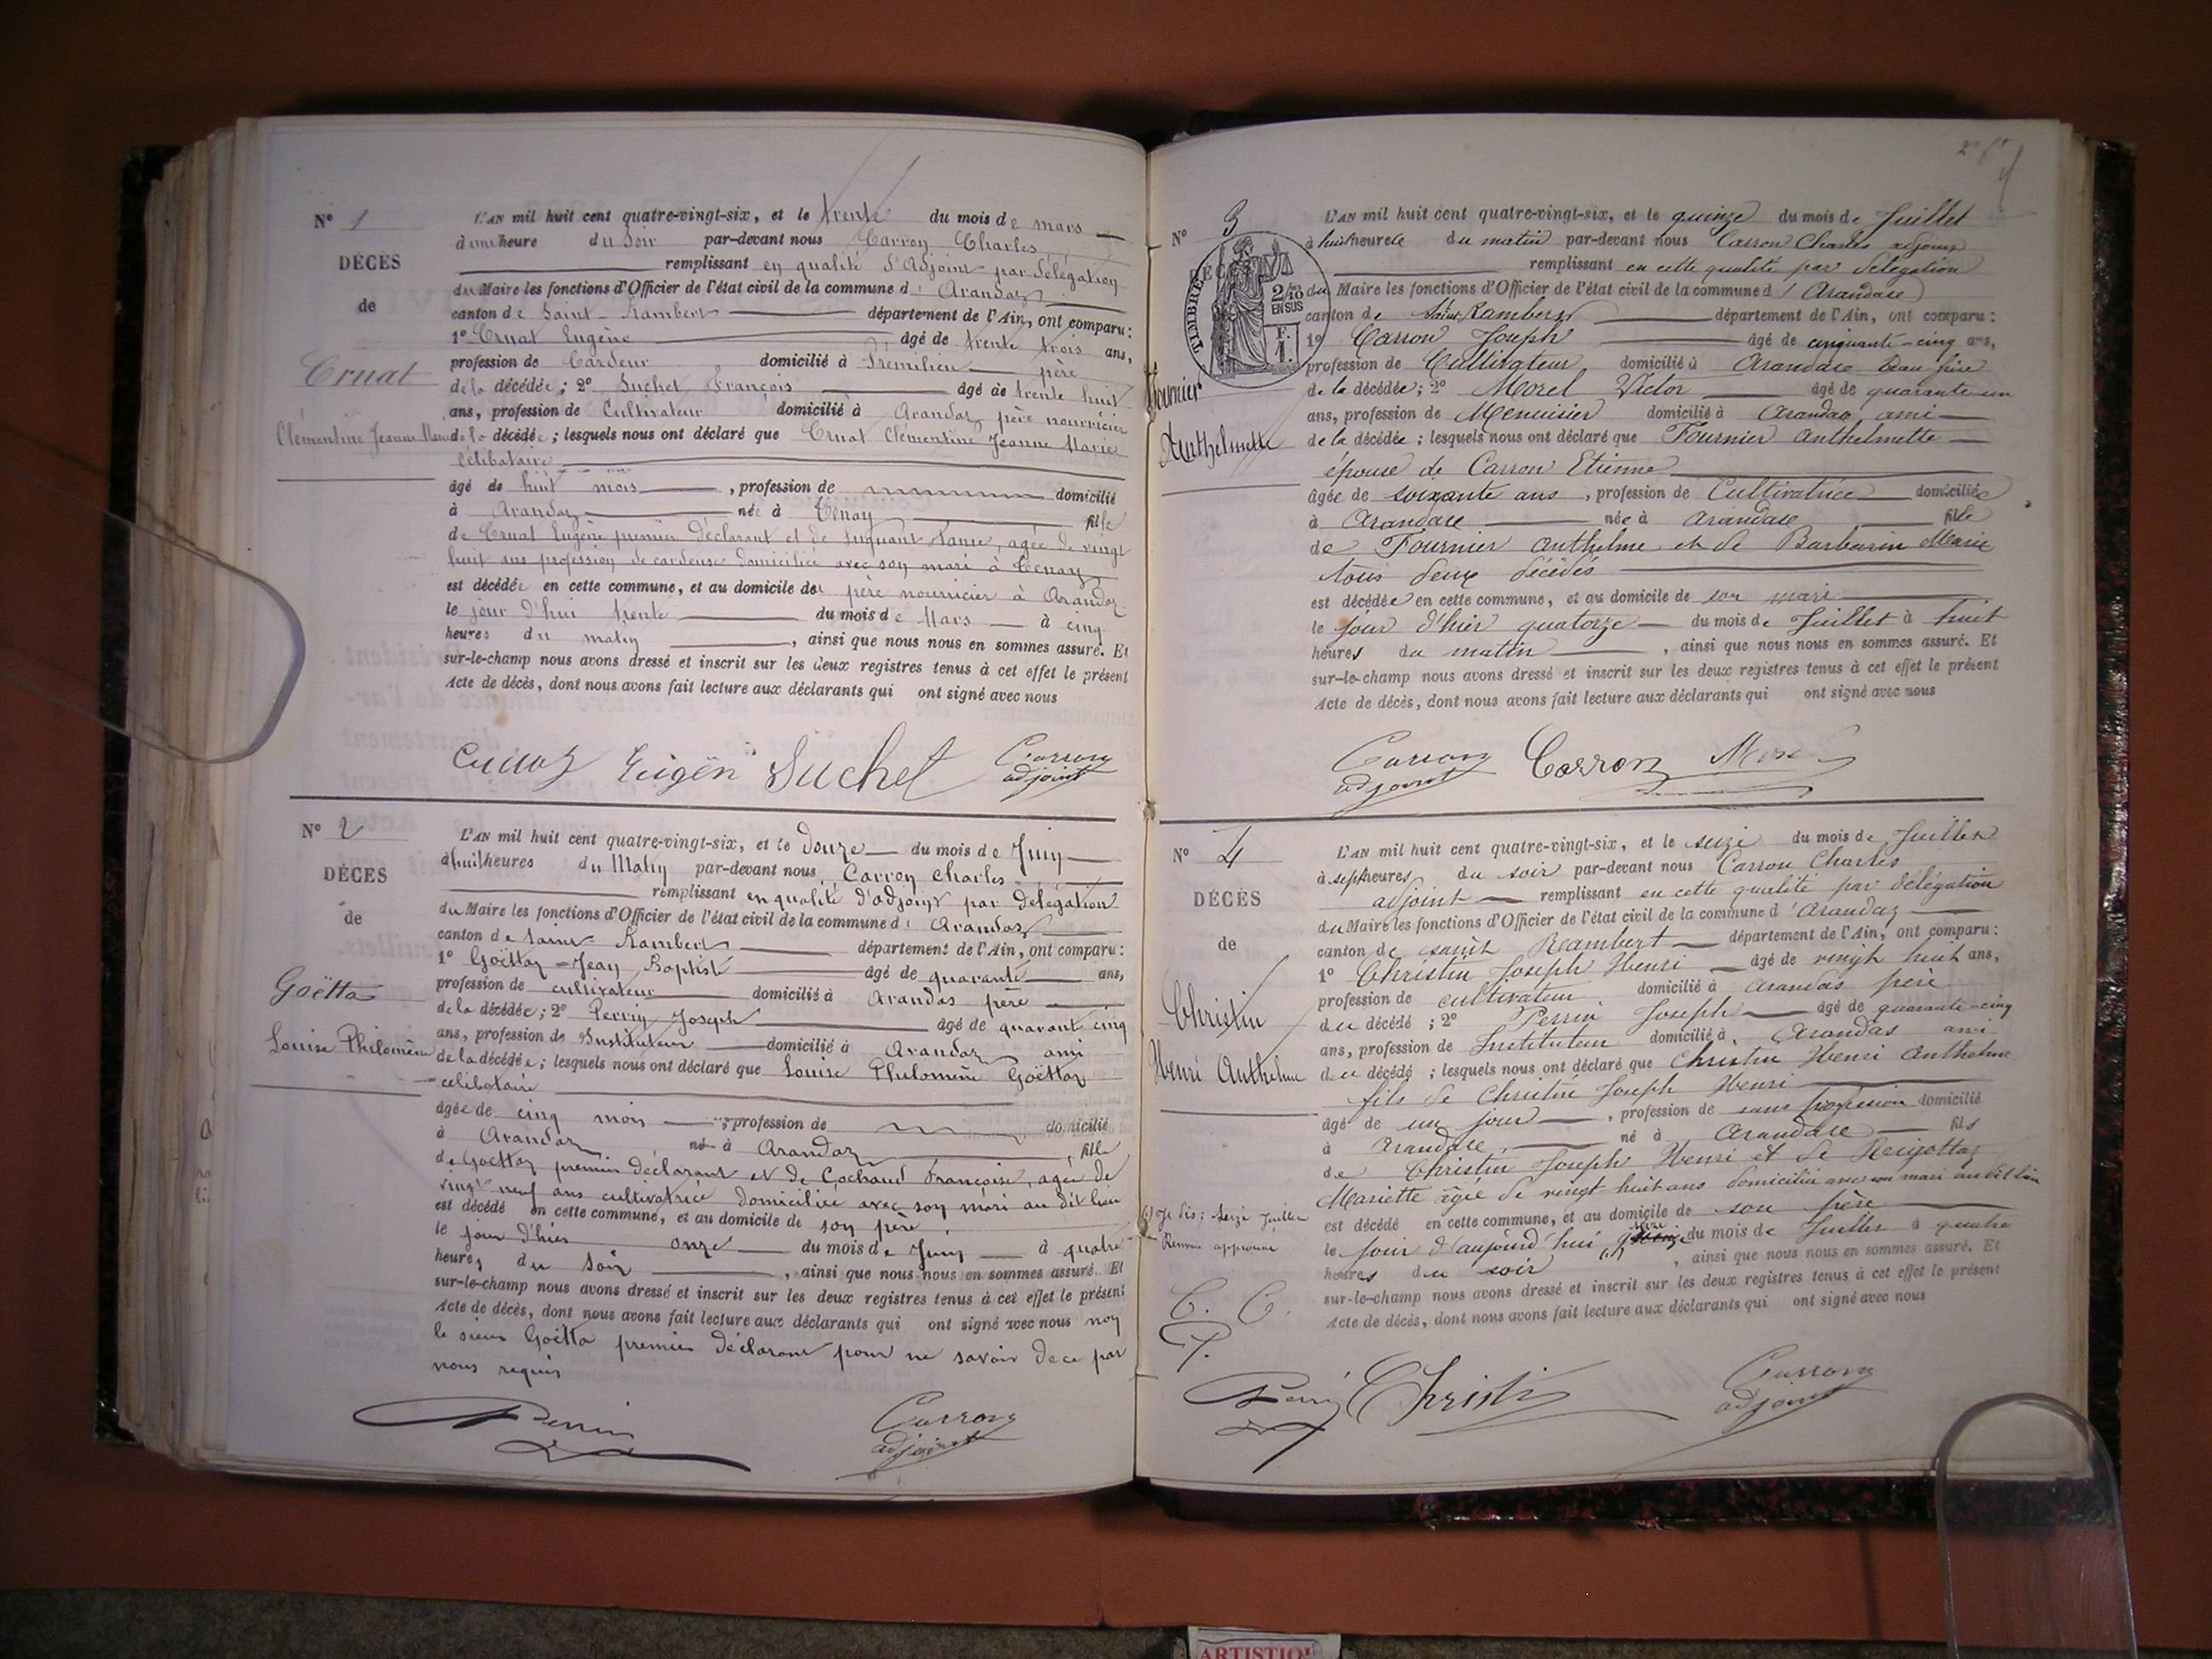 N° 1
DÉCÈS
de
Cruat
Clémentine Jeanne Marie
L'AN mil huit cent quatre-vingt-six, et le trente du mois de mars
à une heure du soir par-devant nous Carron Charles
remplissant en qualité d'Adjoint par délégation
du Maire les fonctions d'Officier de l'état civil de la commune d' Arandaz
canton de Saint-Rambert département de l'Ain, ont comparu :
1° Cruat Eugène âgé de trente trois ans,
profession de Cardeur domicilié à Prémilieu père
de la décédée ; 2° Suchet François âgé de trente huit
ans, profession de Cultivateur domicilié à Arandaz père nourricier
de la décédée ; lesquels nous ont déclaré que Cruat Clémentine Jeanne Marie
célibataire
âgé de huit mois , profession de domicilié
à Arandaz née à Tenay fille
de Cruat Eugène premier déclarant et de agée de vingt
huit ans profession de cardeuse domiciliée avec son mari à Tenay
est décédée en cette commune, et au domicile de père nourricier à Arandaz
le jour d'hui trente du mois de Mars à cinq
heures du matin , ainsi que nous nous en sommes assuré. Et
sur-le-champ nous avons dressé et inscrit sur les deux registres tenus à cet effet le présent
Acte de décès, dont nous avons fait lecture aux déclarants qui ont signé avec nous
Eugèn Suchet Carron
adjoint
N° 2
DÉCÈS
de
Goëtta
Louise Philomène
L'AN mil huit cent quatre-vingt-six, et le douze du mois de Juin
à huit heures du Matin par-devant nous Carron Charles
remplissant en qualité d'adjoint par délégation
du Maire les fonctions d'Officier de l'état civil de la commune d' Arandaz
canton de Saint-Rambert département de l'Ain, ont comparu :
1° Goëttaz Jean Baptiste âgé de quarante ans,
profession de cultivateur domicilié à Arandas père
de la décédée ; 2° Perrin Joseph âgé de quarant cinq
ans, profession de Instituteur domicilié à Arandaz ami
de la décédée ; lesquels nous ont déclaré que Louise Philomène Goëttaz
célibataire
âgée de cinq mois , profession de domicilié
à Arandaz né à Arandaz , fille
de Goëttaz premier déclarant et de Cochaud Françoise, agée de
vingt neuf ans cultivatrice domiciliée avec son mari au dit lieu
est décédé en cette commune, et au domicile de son père
le jour d'hier onze du mois de Juin à quatre
heures du soir , ainsi que nous nous en sommes assuré. Et
sur-le-champ nous avons dressé et inscrit sur les deux registres tenus à cet effet le présent
Acte de décès, dont nous avons fait lecture aux déclarants qui ont signé avec nous non
le sieur Goëtta premier déclarant pour ne savoir de ce par
nous requis
Perrin Carron
adjoint
N° 3
DÉC
TIMBRE
2/10
EN SUS
F.
1.
Fournier
Anthelmette
L'AN mil huit cent quatre-vingt-six, et le quinze du mois de Juillet
à huit heure du matin par-devant nous Carron Charles adjoint
remplissant en cette qualité par délégation
du Maire les fonctions d'Officier de l'état civil de la commune d' Arandase
canton de Saint-Rambert département de l'Ain, ont comparu :
1° Carron Joseph âgé de cinquante-cinq ans,
profession de Cultivateur domicilié à Arandase beau frère
de la décédée ; 2° Morel Victor âgé de quarante un
ans, profession de Menuisier domicilié à Arandaz ami
de la décédée ; lesquels nous ont déclaré que Fournier Anthelmette
épouse de Carron Etienne
âgée de soixante ans , profession de Cultivatrice domiciliée
à Arandase née à Arandase fille
de Fournier Anthelme et de Barbarin Marie
tous deux décédés
est décédée en cette commune, et au domicile de son mari
le jour d'hier quatorze du mois de Juillet à huit
heures du matin , ainsi que nous nous en sommes assuré. Et
sur-le-champ nous avons dressé et inscrit sur les deux registres tenus à cet effet le présent
Acte de décès, dont nous avons fait lecture aux déclarants qui ont signé avec nous
Carron Carron Morel
adjoint
N° 4
DÉCÈS
de
Christin
Henri Anthelme
L'AN mil huit cent quatre-vingt-six, et le seize du mois de Juillet
à sept heures du soir par-devant nous Carron Charles
adjoint remplissant en cette qualité par délégation
du Maire les fonctions d'Officier de l'état civil de la commune d' Arandaz
canton de saint Rambert département de l'Ain, ont comparu :
1° Christin Joseph Henri âgé de vingt huit ans,
profession de cultivateur domicilié à Arandas père
du décédé ; 2° Perrin Joseph âgé de quarante-cinq
ans, profession de Instituteur domicilié à Arandas ami
du décédé ; lesquels nous ont déclaré que Christin Henri Anthelme
fils de Christin Joseph Henri
âgé de un jour , profession de sans profession domicilié
à Arandase né à Arandase fils
de Christin Joseph Henri et de
Mariette âgée de vingt huit ans domiciliée avec son mari au dit lieu
est décédé en cette commune, et au domicile de son père
le jour d'aujourd'hui seize (1) du mois de Juillet à quatre
heures du soir , ainsi que nous nous en sommes assuré. Et
sur-le-champ nous avons dressé et inscrit sur les deux registres tenus à cet effet le présent
Acte de décès, dont nous avons fait lecture aux déclarants qui ont signé avec nous
(1) Je dis : seize Juillet
Renvoi approuvé
C. C.
P.
Perrin Christin Carron
adjoint
ARTISTIQ